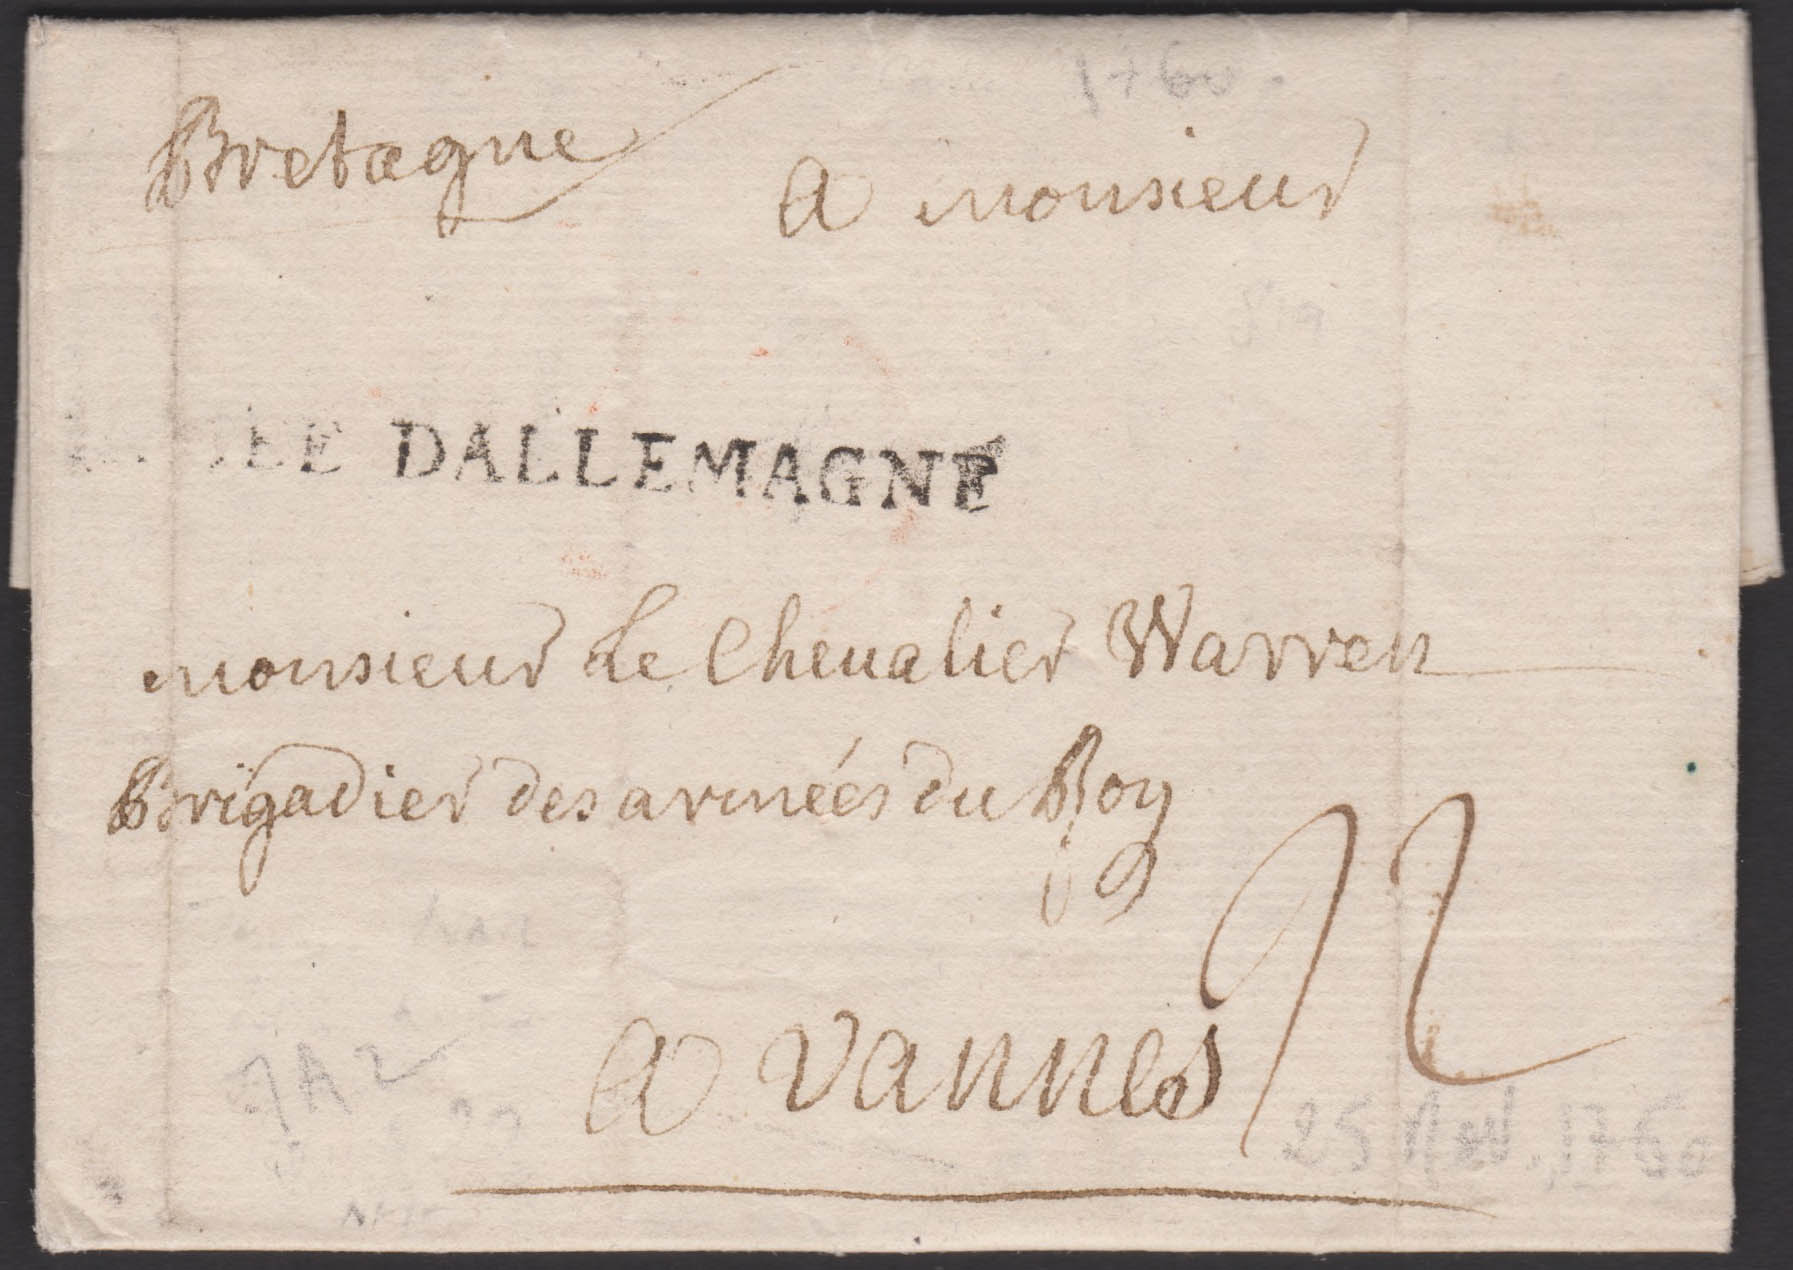 1760.
Bretagne
a monsieur
DALLEMAGNE
monsieur le Chevalier Warren
Brigadier des armées du Roy
a vannes
22
25 Nov. 1760